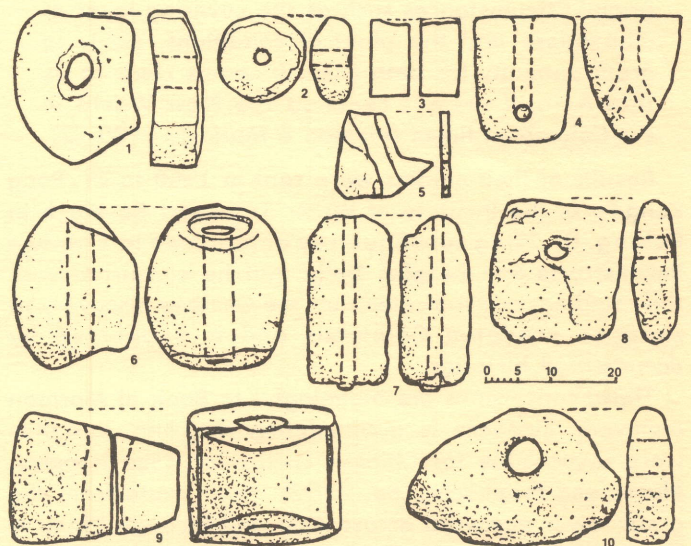 1
2
3
4
5
6
7
8
0 5 10 20
9
10